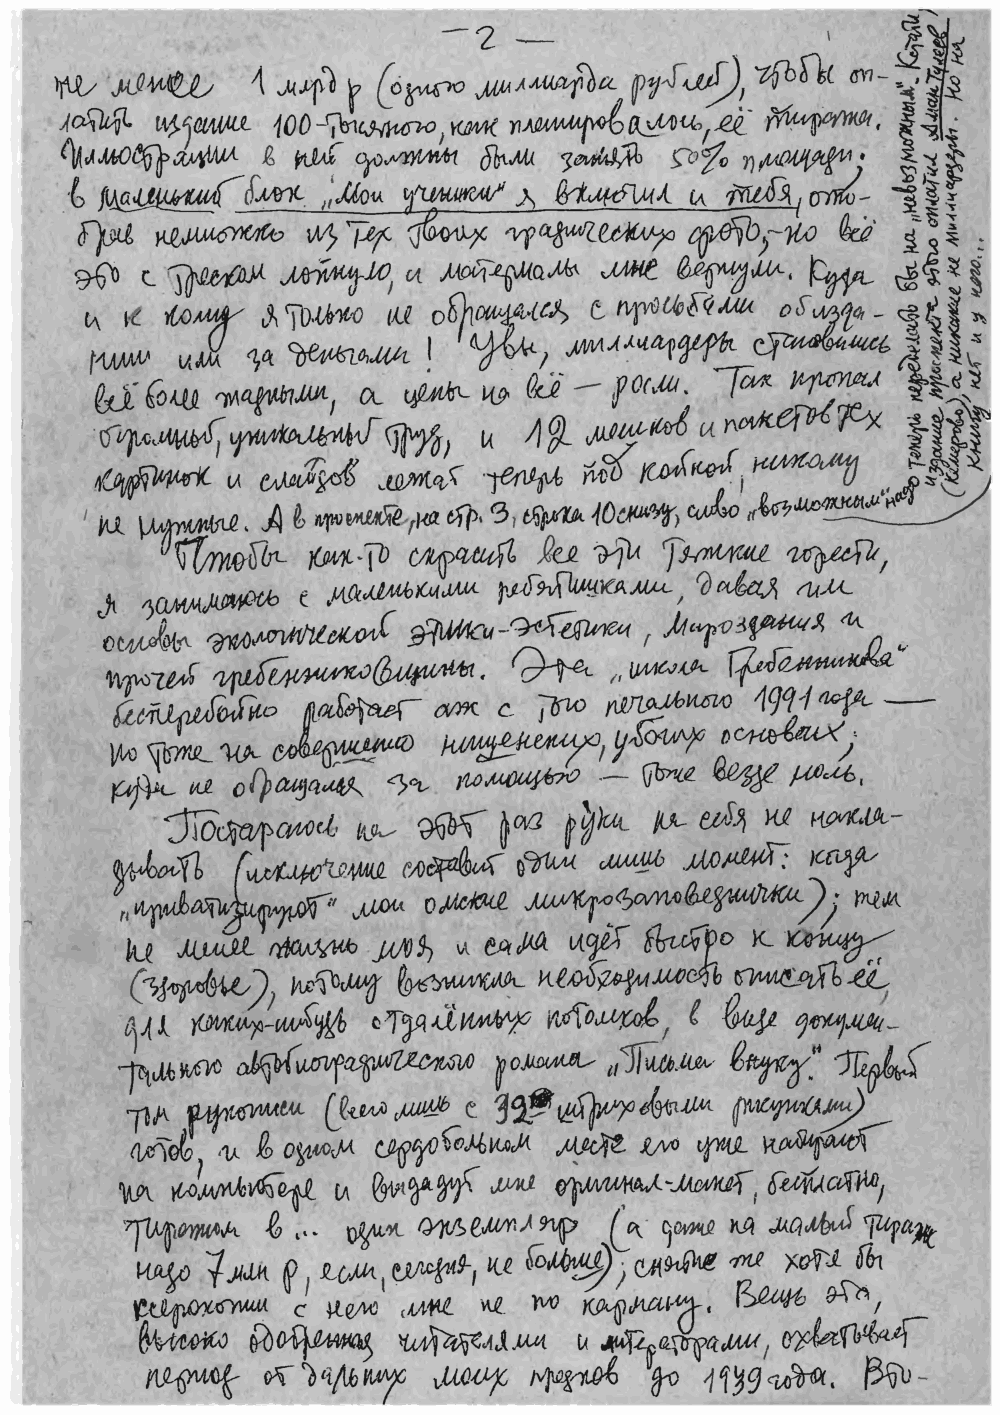 — 2 —
не менее 1 млрд р (одного миллиарда рублей), чтобы оп-
латить издание 100-тысячного, как планировалось, её тиража.
Иллюстрации в ней должны были занять 50% площади;
в маленький блок „Мои ученики“ я включил и тебя, ото-
брав немножко из тех твоих графических фото, — но всё
это с треском лопнуло, и материалы мне вернули. Куда
и к кому я только не обращался с просьбами об изда-
нии или за деньгами! Увы, миллиардеры становились
всё более жадными, а цены на всё — росли. Так пропал
огромный, уникальный труд, и 12 мешков и пакетов тех
картинок и слайдов лежат теперь под койкой, никому
не нужные. А в проспекте, на стр. 3, строка 10 снизу, слово „возможным“ надо
теперь переделать бы на „невозможным“. Кстати,
издание проспекта этого оплатил Аман Тулеев
(Кемерово), а никакие не миллиардеры. Но на
книгу нет и у него...
Чтобы как-то скрасить все эти тяжкие горести,
я занимаюсь с маленькими ребятишками, давая им
основы экологической этики-эстетики, Мироздания и
прочей гребенниковщины. Эта „школа Гребенникова“
бесперебойно работает аж с того печального 1991 года —
но тоже на совершенно нищенских, убогих основах;
куда не обращался за помощью — тоже везде ноль.
Постараюсь на этот раз руки на себя не накла-
дывать (исключение составит один лишь момент: когда
„приватизируют“ мои омские микрозаповеднички); тем
не менее жизнь моя и сама идёт быстро к концу
(здоровье), потому возникла необходимость описать её,
для каких-нибудь отдалённых потомков, в виде докумен-
тального автобиографического романа „Письма внуку“. Первый
том рукописи (всего лишь с 32 штриховыми рисунками)
готов, и в одном сердобольном месте его уже набирают
на компьютере и выдадут мне оригинал-макет, бесплатно,
тиражом в... один экземпляр (а даже на малый тираж
надо 7 млн р, если, сегодня, не больше); снятие же хотя бы
ксерокопии с него мне не по карману. Вещь эта,
высоко одобренная читателями и литераторами, охватывает
период от дальних моих предков до 1939 года. Вто-